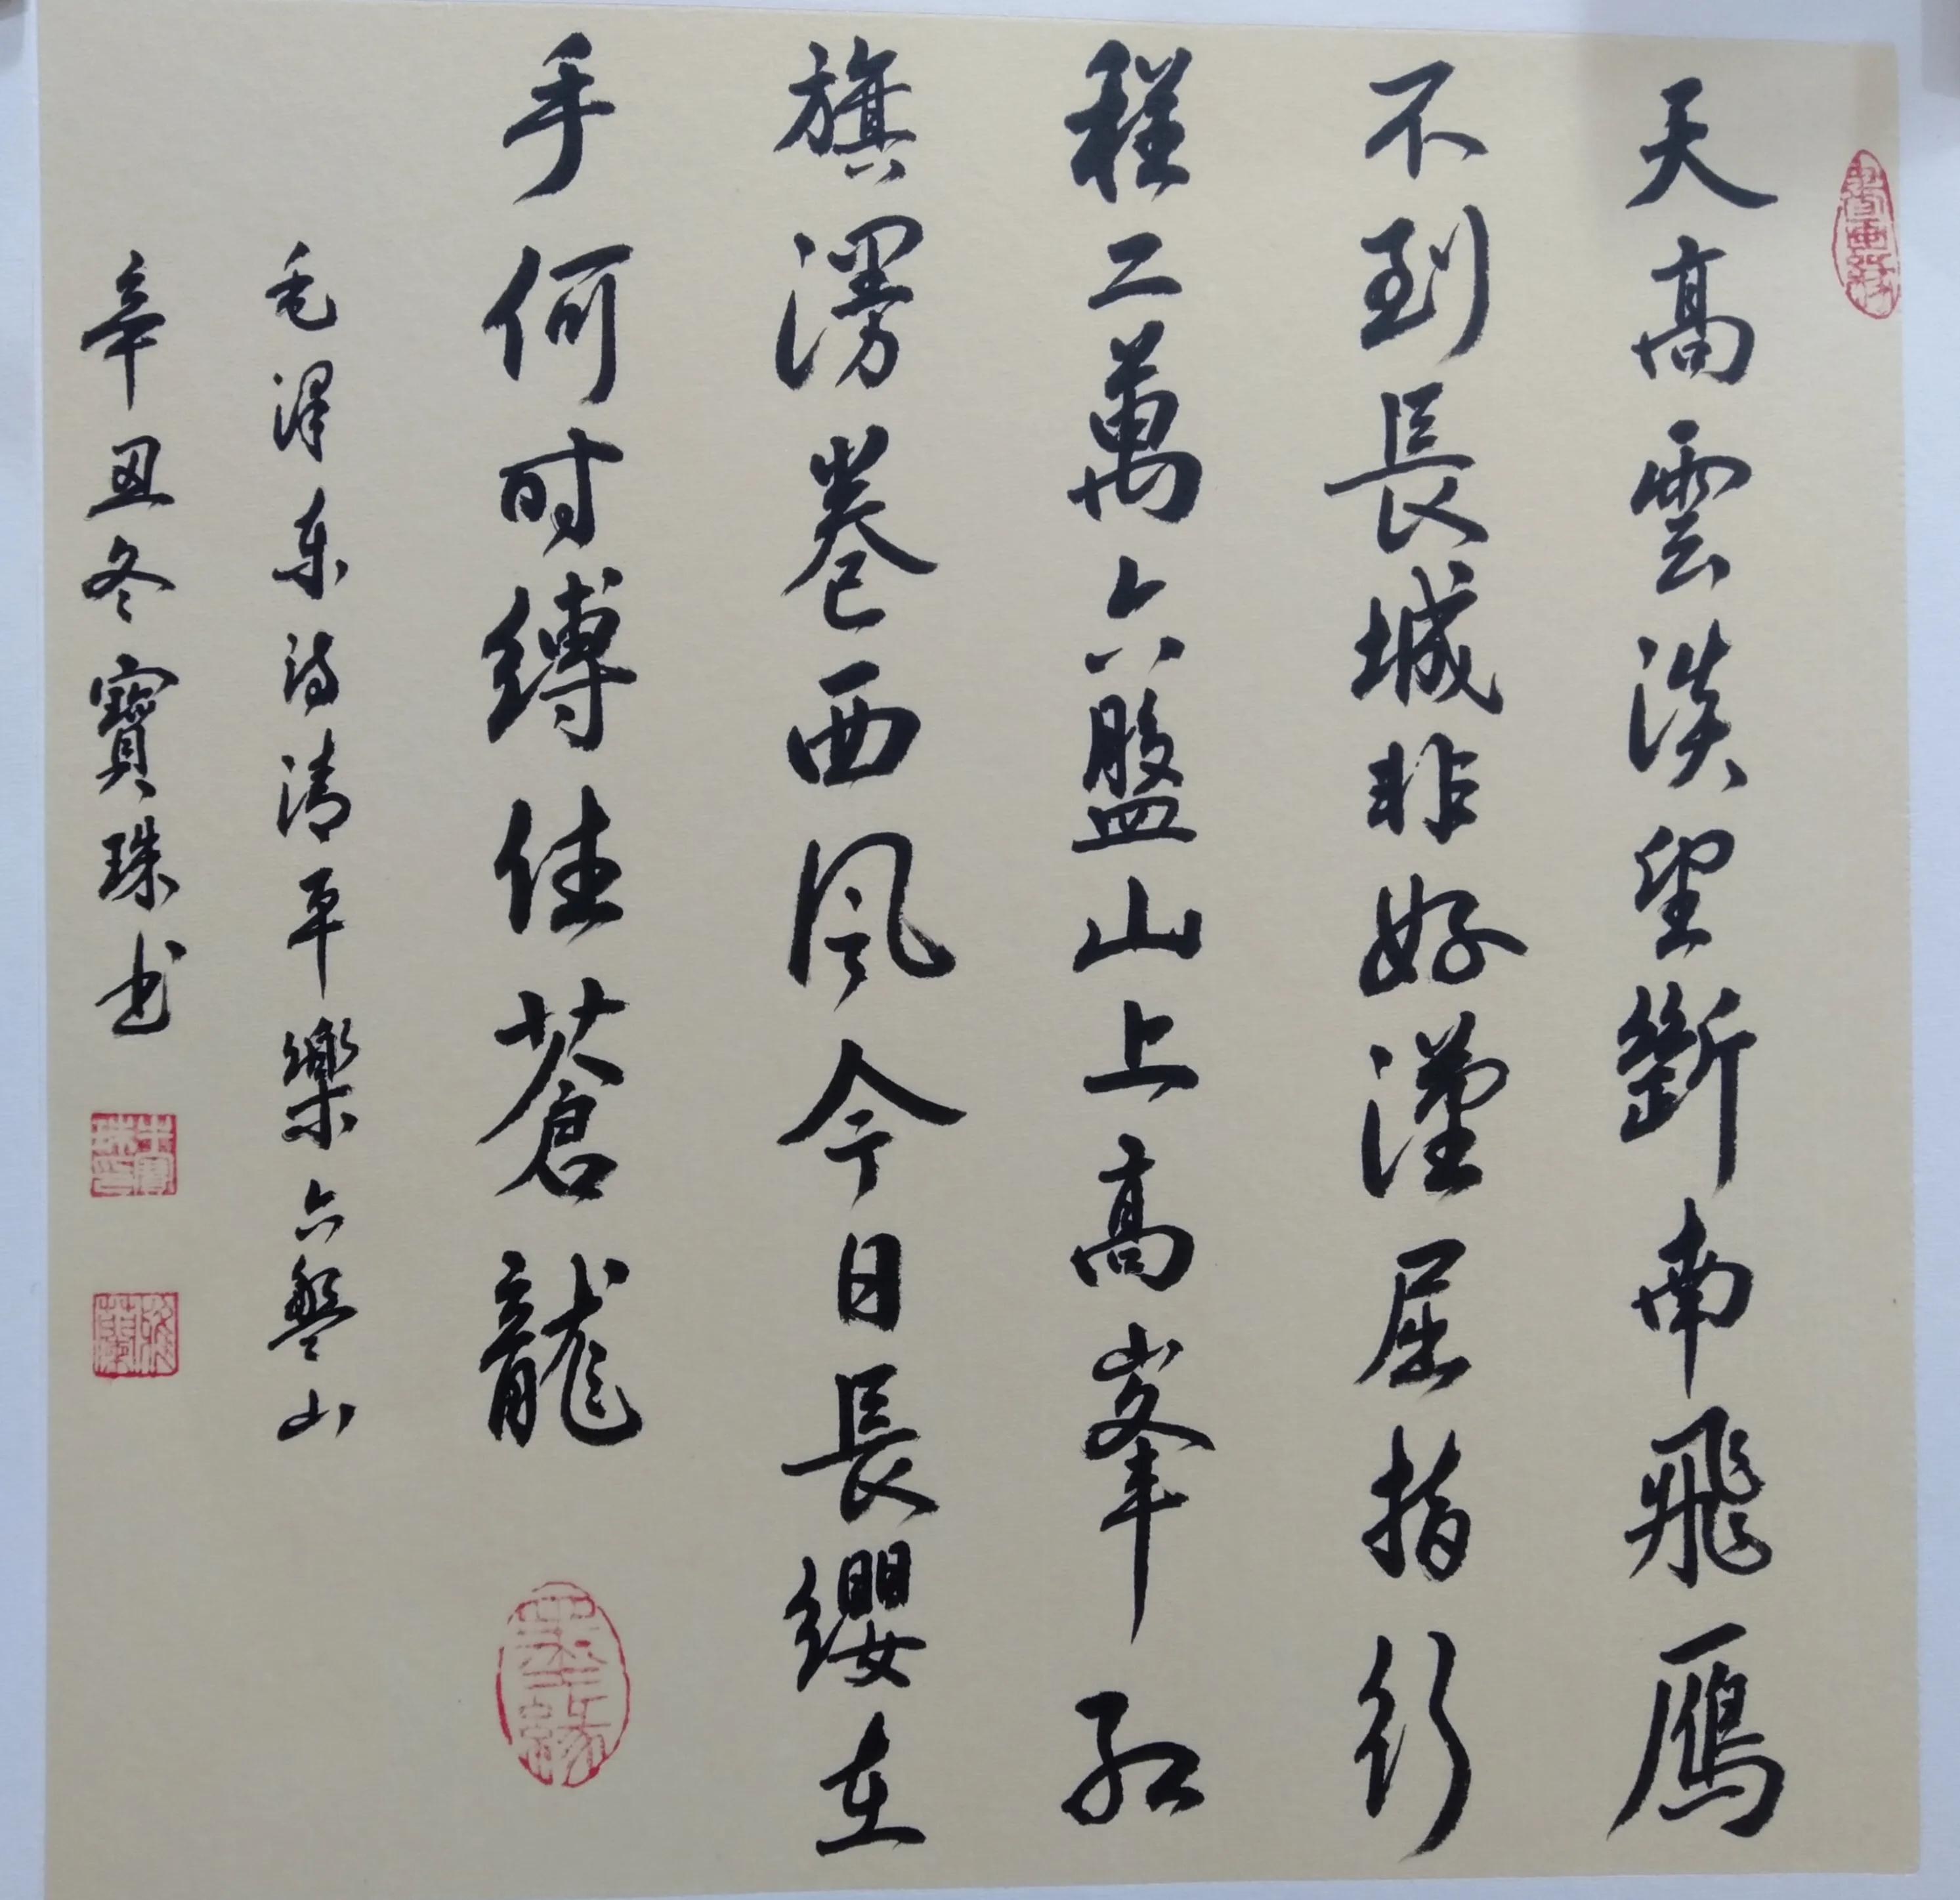 天高雲淡望斷南飛鴈
不到長城非好漢屈指行
程二萬六盤山上高峯红
旗漫卷西风今日長纓在
手何时縛住蒼龍
毛泽东诗清平樂六盤山
辛丑冬寶珠书
朱寶珠印